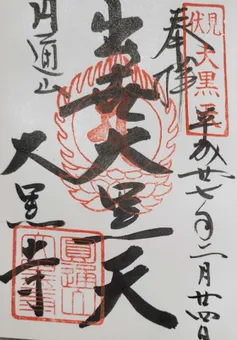 奉拝
平成廿七年二月廿四日
出世大黒天
円通山
大黒寺
圓通山